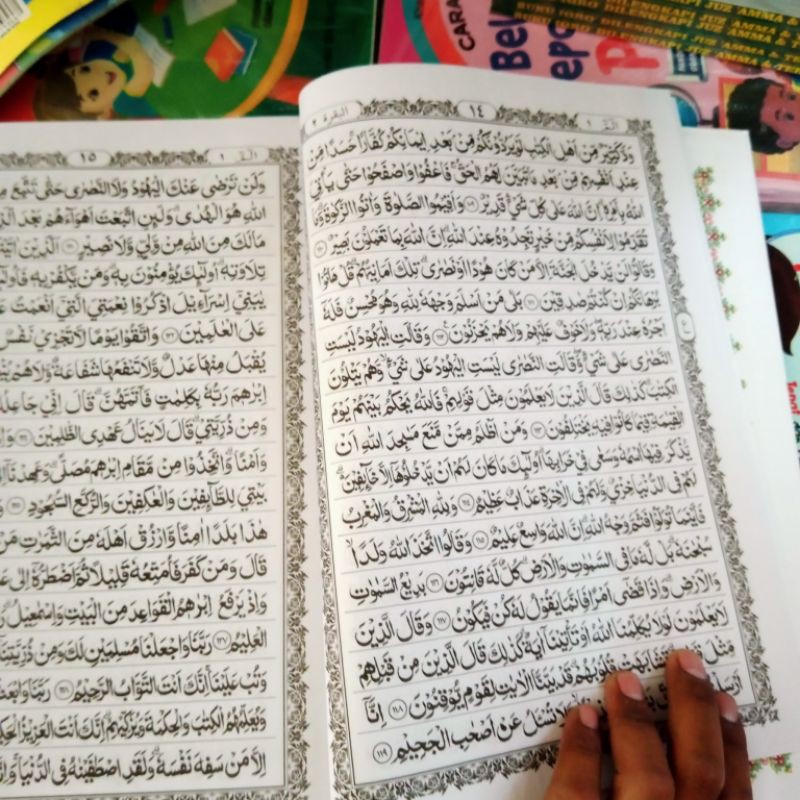 البقرة ٢
١٤
الٓمّٓ ١
وَدَّ كَثِيْرٌ مِّنْ اَهْلِ الْكِتٰبِ لَوْ يَرُدُّوْنَكُمْ مِّنْ بَعْدِ اِيْمَانِكُمْ كُفَّارًا حَسَدًا مِّنْ
عِنْدِ اَنْفُسِهِمْ مِّنْ بَعْدِ مَا تَبَيَّنَ لَهُمُ الْحَقُّ فَاعْفُوْا وَاصْفَحُوْا حَتّٰى يَأْتِيَ
اللهُ بِاَمْرِهٖ اِنَّ اللهَ عَلٰى كُلِّ شَيْءٍ قَدِيْرٌ ١٠٩ وَاَقِيْمُوا الصَّلٰوةَ وَاٰتُوا الزَّكٰوةَ وَمَا
تُقَدِّمُوْا لِاَنْفُسِكُمْ مِّنْ خَيْرٍ تَجِدُوْهُ عِنْدَ اللهِ اِنَّ اللهَ بِمَا تَعْمَلُوْنَ بَصِيْرٌ ١١٠
وَقَالُوْا لَنْ يَّدْخُلَ الْجَنَّةَ اِلَّا مَنْ كَانَ هُوْدًا اَوْ نَصٰرٰى تِلْكَ اَمَانِيُّهُمْ قُلْ هَاتُوْا
بُرْهَانَكُمْ اِنْ كُنْتُمْ صٰدِقِيْنَ ١١١ بَلٰى مَنْ اَسْلَمَ وَجْهَهٗ لِلّٰهِ وَهُوَ مُحْسِنٌ فَلَهٗٓ
اَجْرُهٗ عِنْدَ رَبِّهٖ وَلَا خَوْفٌ عَلَيْهِمْ وَلَا هُمْ يَحْزَنُوْنَ ١١٢ وَقَالَتِ الْيَهُوْدُ لَيْسَتِ
النَّصٰرٰى عَلٰى شَيْءٍ وَّقَالَتِ النَّصٰرٰى لَيْسَتِ الْيَهُوْدُ عَلٰى شَيْءٍ وَّهُمْ يَتْلُوْنَ
الْكِتٰبَ كَذٰلِكَ قَالَ الَّذِيْنَ لَا يَعْلَمُوْنَ مِثْلَ قَوْلِهِمْ فَاللهُ يَحْكُمُ بَيْنَهُمْ يَوْمَ
الْقِيٰمَةِ فِيْمَا كَانُوْا فِيْهِ يَخْتَلِفُوْنَ ١١٣ وَمَنْ اَظْلَمُ مِمَّنْ مَّنَعَ مَسٰجِدَ اللهِ اَنْ
يُّذْكَرَ فِيْهَا اسْمُهٗ وَسَعٰى فِيْ خَرَابِهَا اُولٰٓئِكَ مَا كَانَ لَهُمْ اَنْ يَّدْخُلُوْهَآ اِلَّا خَآئِفِيْنَ
لَهُمْ فِى الدُّنْيَا خِزْيٌ وَّلَهُمْ فِى الْاٰخِرَةِ عَذَابٌ عَظِيْمٌ ١١٤ وَلِلّٰهِ الْمَشْرِقُ وَالْمَغْرِبُ
فَاَيْنَمَا تُوَلُّوْا فَثَمَّ وَجْهُ اللهِ اِنَّ اللهَ وَاسِعٌ عَلِيْمٌ ١١٥ وَقَالُوا اتَّخَذَ اللهُ وَلَدًا
سُبْحٰنَهٗ بَلْ لَّهٗ مَا فِى السَّمٰوٰتِ وَالْاَرْضِ كُلٌّ لَّهٗ قٰنِتُوْنَ ١١٦ بَدِيْعُ السَّمٰوٰتِ
وَالْاَرْضِ وَاِذَا قَضٰٓى اَمْرًا فَاِنَّمَا يَقُوْلُ لَهٗ كُنْ فَيَكُوْنُ ١١٧ وَقَالَ الَّذِيْنَ
لَا يَعْلَمُوْنَ لَوْلَا يُكَلِّمُنَا اللهُ اَوْ تَأْتِيْنَآ اٰيَةٌ كَذٰلِكَ قَالَ الَّذِيْنَ مِنْ قَبْلِهِمْ
مِّثْلَ تَشَابَهَتْ قُلُوْبُهُمْ قَدْ بَيَّنَّا الْاٰيٰتِ لِقَوْمٍ يُّوْقِنُوْنَ ١١٨ اِنَّآ
وَّلَا تُسْـَٔلُ عَنْ اَصْحٰبِ الْجَحِيْمِ ١١٩
١٥
الٓمّٓ ١
وَلَنْ تَرْضٰى عَنْكَ الْيَهُوْدُ وَلَا النَّصٰرٰى حَتّٰى تَتَّبِعَ
اللهِ هُوَ الْهُدٰى وَلَئِنِ اتَّبَعْتَ اَهْوَآءَهُمْ بَعْدَ
مَا لَكَ مِنَ اللهِ مِنْ وَّلِيٍّ وَّلَا نَصِيْرٍ ١٢٠ اَلَّذِيْنَ
تِلَاوَتِهٖ اُولٰٓئِكَ يُؤْمِنُوْنَ بِهٖ وَمَنْ يَّكْفُرْ بِهٖ
يٰبَنِيْٓ اِسْرَآءِيْلَ اذْكُرُوْا نِعْمَتِيَ الَّتِيْٓ اَنْعَمْتُ
عَلَى الْعٰلَمِيْنَ ١٢٢ وَاتَّقُوْا يَوْمًا لَّا تَجْزِيْ نَفْسٌ
يُقْبَلُ مِنْهَا عَدْلٌ وَّلَا تَنْفَعُهَا شَفَاعَةٌ وَّلَا هُمْ
اِبْرٰهٖمَ رَبُّهٗ بِكَلِمٰتٍ فَاَتَمَّهُنَّ قَالَ اِنِّيْ جَاعِلُكَ
وَمِنْ ذُرِّيَّتِيْ قَالَ لَا يَنَالُ عَهْدِى الظّٰلِمِيْنَ ١٢٤
وَاَمْنًا وَاتَّخِذُوْا مِنْ مَّقَامِ اِبْرٰهٖمَ مُصَلًّى وَعَهِدْنَآ
بَيْتِيَ لِلطَّآئِفِيْنَ وَالْعٰكِفِيْنَ وَالرُّكَّعِ السُّجُوْدِ ١٢٥
هٰذَا بَلَدًا اٰمِنًا وَّارْزُقْ اَهْلَهٗ مِنَ الثَّمَرٰتِ مَنْ
قَالَ وَمَنْ كَفَرَ فَاُمَتِّعُهٗ قَلِيْلًا ثُمَّ اَضْطَرُّهٗٓ اِلٰى
وَاِذْ يَرْفَعُ اِبْرٰهٖمُ الْقَوَاعِدَ مِنَ الْبَيْتِ وَاِسْمٰعِيْلُ
الْعَلِيْمُ ١٢٧ رَبَّنَا وَاجْعَلْنَا مُسْلِمَيْنِ لَكَ وَمِنْ ذُرِّيَّتِنَآ
وَتُبْ عَلَيْنَا اِنَّكَ اَنْتَ التَّوَّابُ الرَّحِيْمُ ١٢٨ رَبَّنَا وَابْعَثْ
وَيُعَلِّمُهُمُ الْكِتٰبَ وَالْحِكْمَةَ وَيُزَكِّيْهِمْ اِنَّكَ اَنْتَ الْعَزِيْزُ
اِلَّا مَنْ سَفِهَ نَفْسَهٗ وَلَقَدِ اصْطَفَيْنٰهُ فِى الدُّنْيَا
CARA
Bel
DILENGKAPI JUZ AMMA &